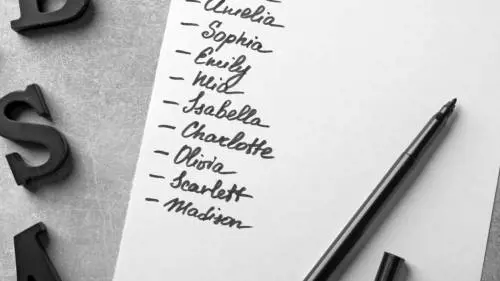 – Amelia
– Sophia
– Emily
– Mia
– Isabella
– Charlotte
– Olivia
– Scarlett
– Madison
S
A